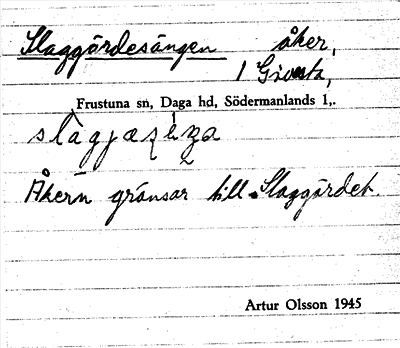 Slaggärdesängen åker,
1 Givesta,
Frustuna sn, Daga hd, Södermanlands l,.
Åkern gränsar till Slaggärdet.
Artur Olsson 1945